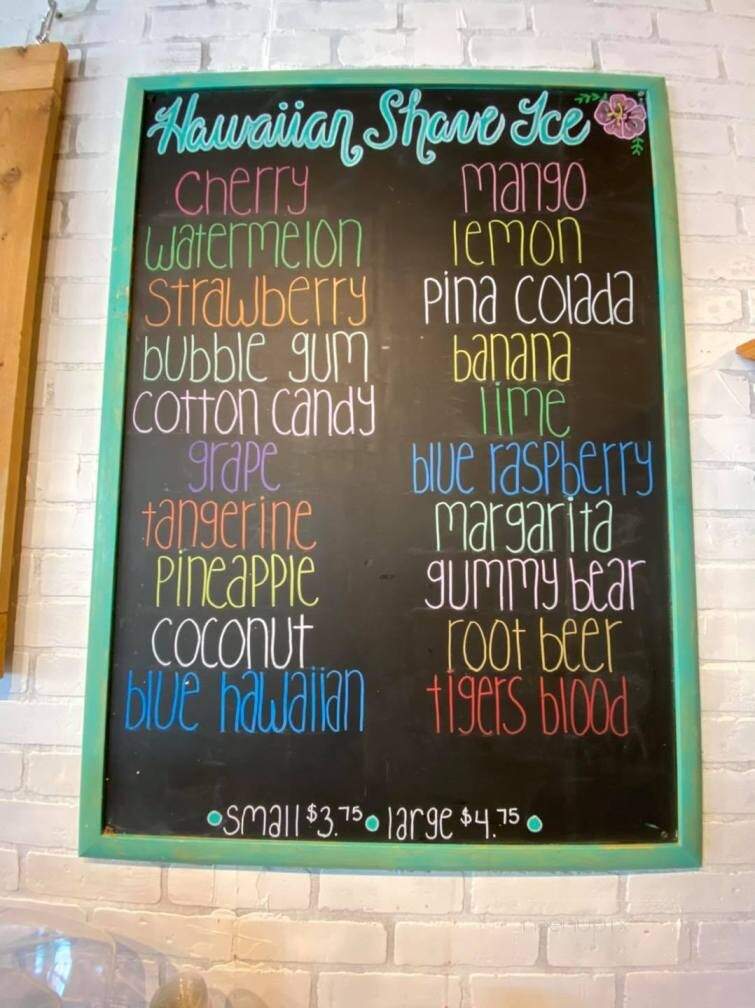 Hawaiian Shave Ice
cherry
watermelon
strawberry
bubble gum
cotton candy
grape
tangerine
pineapple
coconut
blue hawaiian
mango
lemon
pina colada
banana
lime
blue raspberry
margarita
gummy bear
root beer
tigers blood
• small $3.75 • large $4.75 •